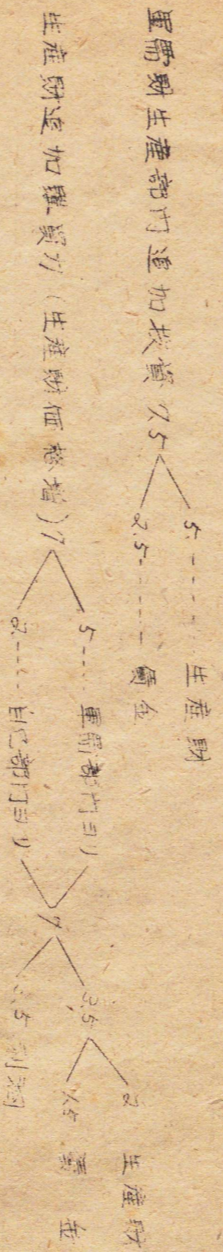 軍需財生産部門追加投資7.5
5 ...... 生産財
2.5 ...... 賃金
生産財追加購買力(生産財価格増)7
5 .... 軍需部門ヨリ
2 .... 自己部門ヨリ
7
3.5
2 生産財
1.5 賃金
3.5 利潤